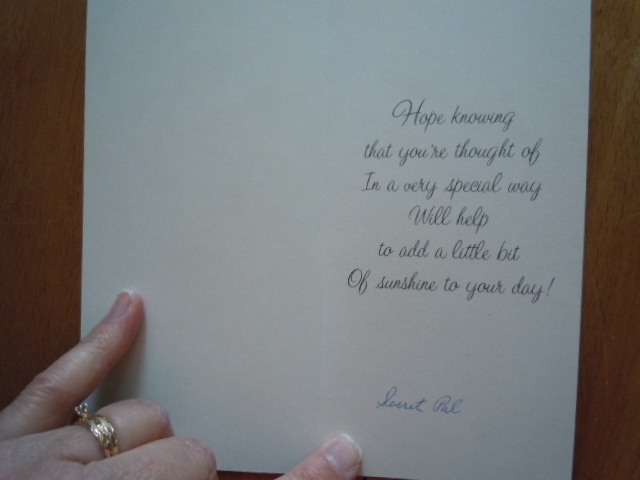 Hope knowing
that you're thought of
In a very special way
Will help
to add a little bit
Of sunshine to your day!
Secret Pal